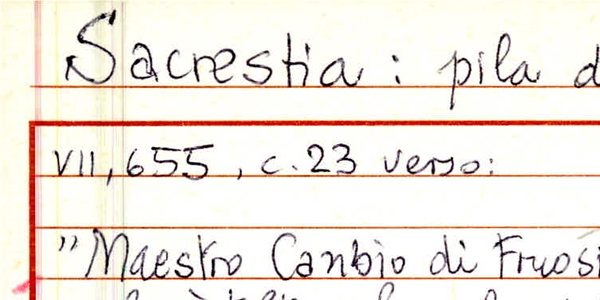 Sacrestia: pila d
VII, 655, c. 23 verso:
"Maestro Canbio di Fruosi